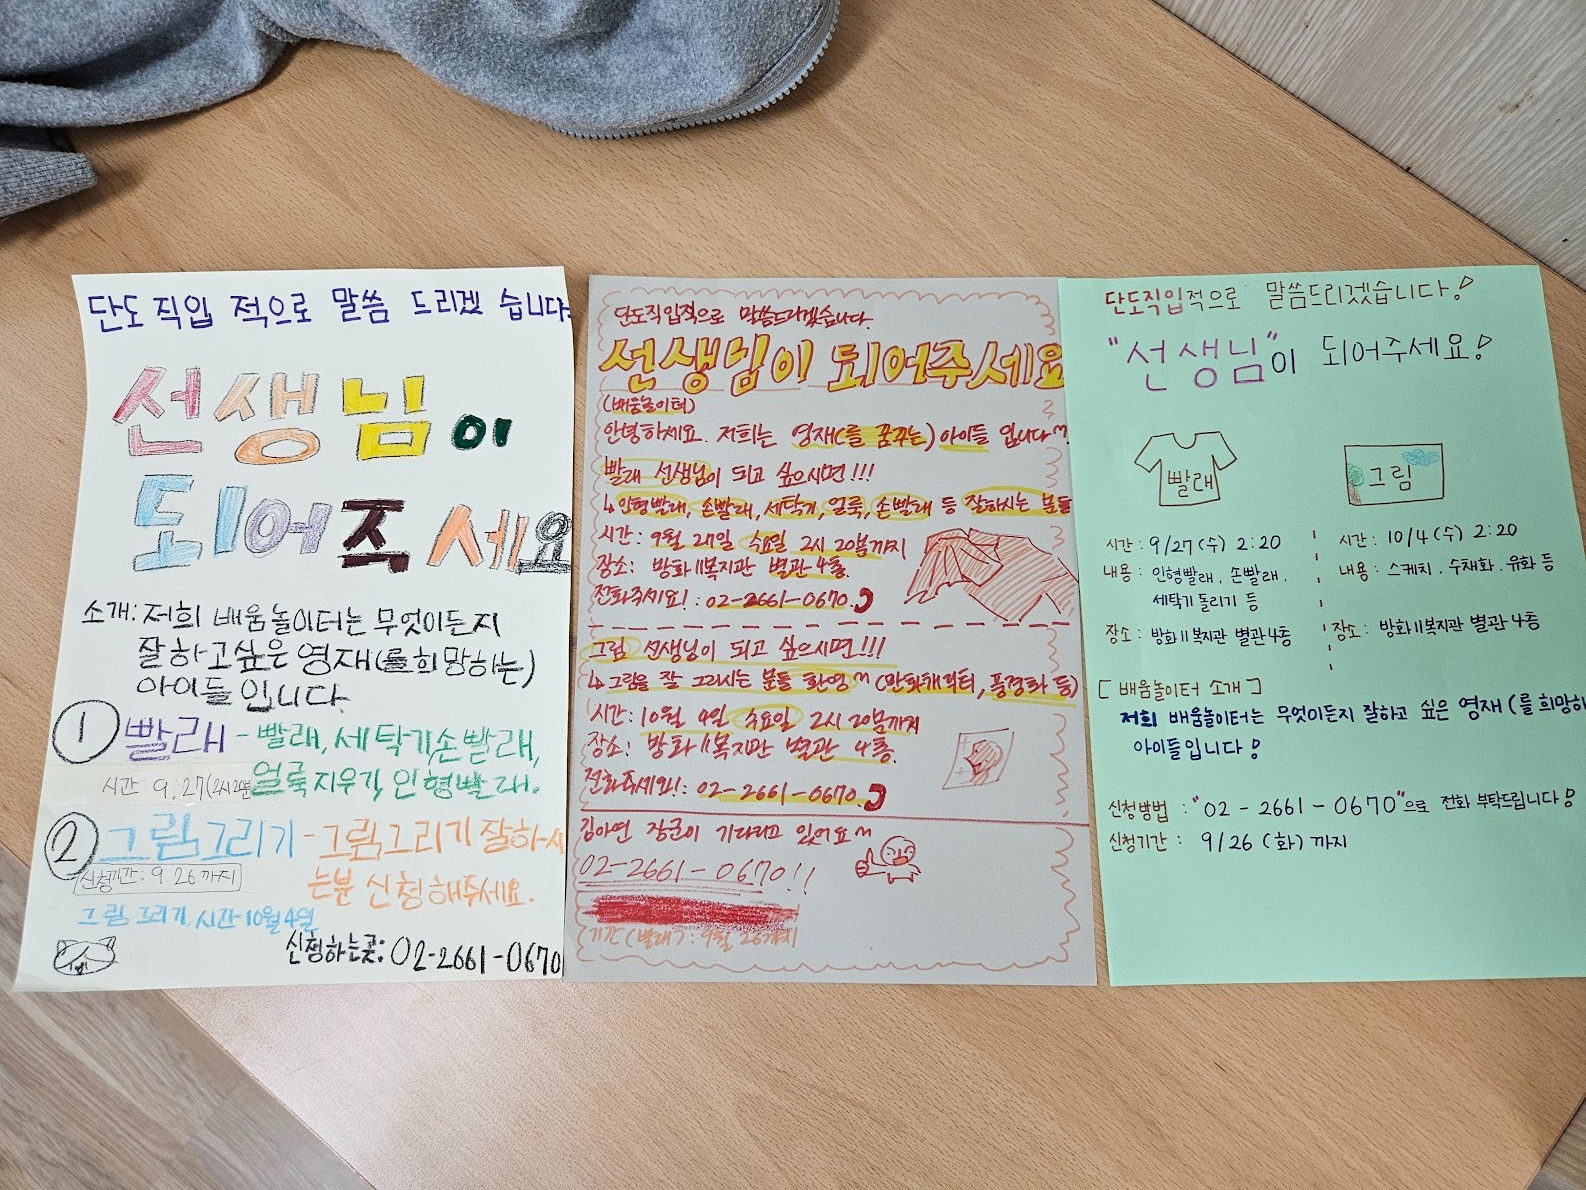 단도직입 적으로 말씀 드리겠 습니다.
선생님이
되어주세요
소개: 저희 배움놀이터는 무엇이든지
잘하고싶은 영재(를희망하는)
아이들 입니다.
① 빨래 - 빨래, 세탁기,손빨래,
얼룩지우기, 인형빨래.
시간: 9.27(2시2분
② 그림그리기 - 그림그리기 잘하시
는분 신청해주세요.
신청기간: 9.26까지
그림그리기, 시간-10월4일
신청하는곳: 02-2661-0670
단도직입적으로 말씀드리겠습니다.
선생님이 되어주세요
(배움놀이터)
안녕하세요. 저희는 영재(를 꿈꾸는) 아이들 입니다^^.
빨래 선생님이 되고 싶으시면!!!
↳인형빨래, 손빨래, 세탁기, 얼룩, 손빨래 등 잘하시는 분들
시간: 9월 27일 수요일 2시 20분까지
장소: 방화11복지관 별관 4층.
전화주세요!: 02-2661-0670.
그림 선생님이 되고 싶으시면!!!
↳그림을 잘 그리시는 분들 환영^^ (만화캐릭터, 풍경화 등)
시간: 10월 4일 수요일 2시 20분까지
장소: 방화11복지관 별관 4층.
전화주세요!: 02-2661-0670.
김아연 장군이 기다리고 있어요^^
02-2661-0670!!
기간(빨래): 9월 26까지
단도직입적으로 말씀드리겠습니다!
"선생님"이 되어주세요!
빨래
그림
시간: 9/27(수) 2:20
내용: 인형빨래, 손빨래,
세탁기 돌리기 등
장소: 방화11복지관 별관4층
시간: 10/4(수) 2:20
내용: 스케치, 수채화, 유화 등
장소: 방화11복지관 별관 4층
[배움놀이터 소개]
저희 배움놀이터는 무엇이든지 잘하고 싶은 영재(를 희망하
아이들입니다!
신청방법: "02-2661-0670"으로 전화 부탁드립니다!
신청기간: 9/26 (화)까지